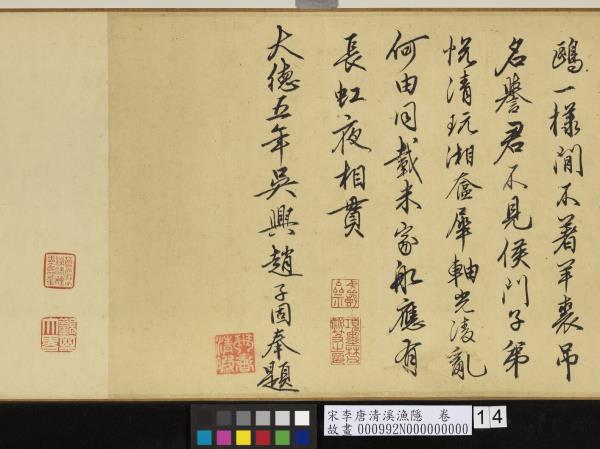 鷗一樣閒不着羊裘吊
名譽君不見侯門子弟
悅清玩湘奩犀軸光凌亂
何由同載米家船應有
長虹夜相貫
大德五年吳興趙子固奉題
宋李唐清溪漁隱 卷
故畫 000992N000000000
14